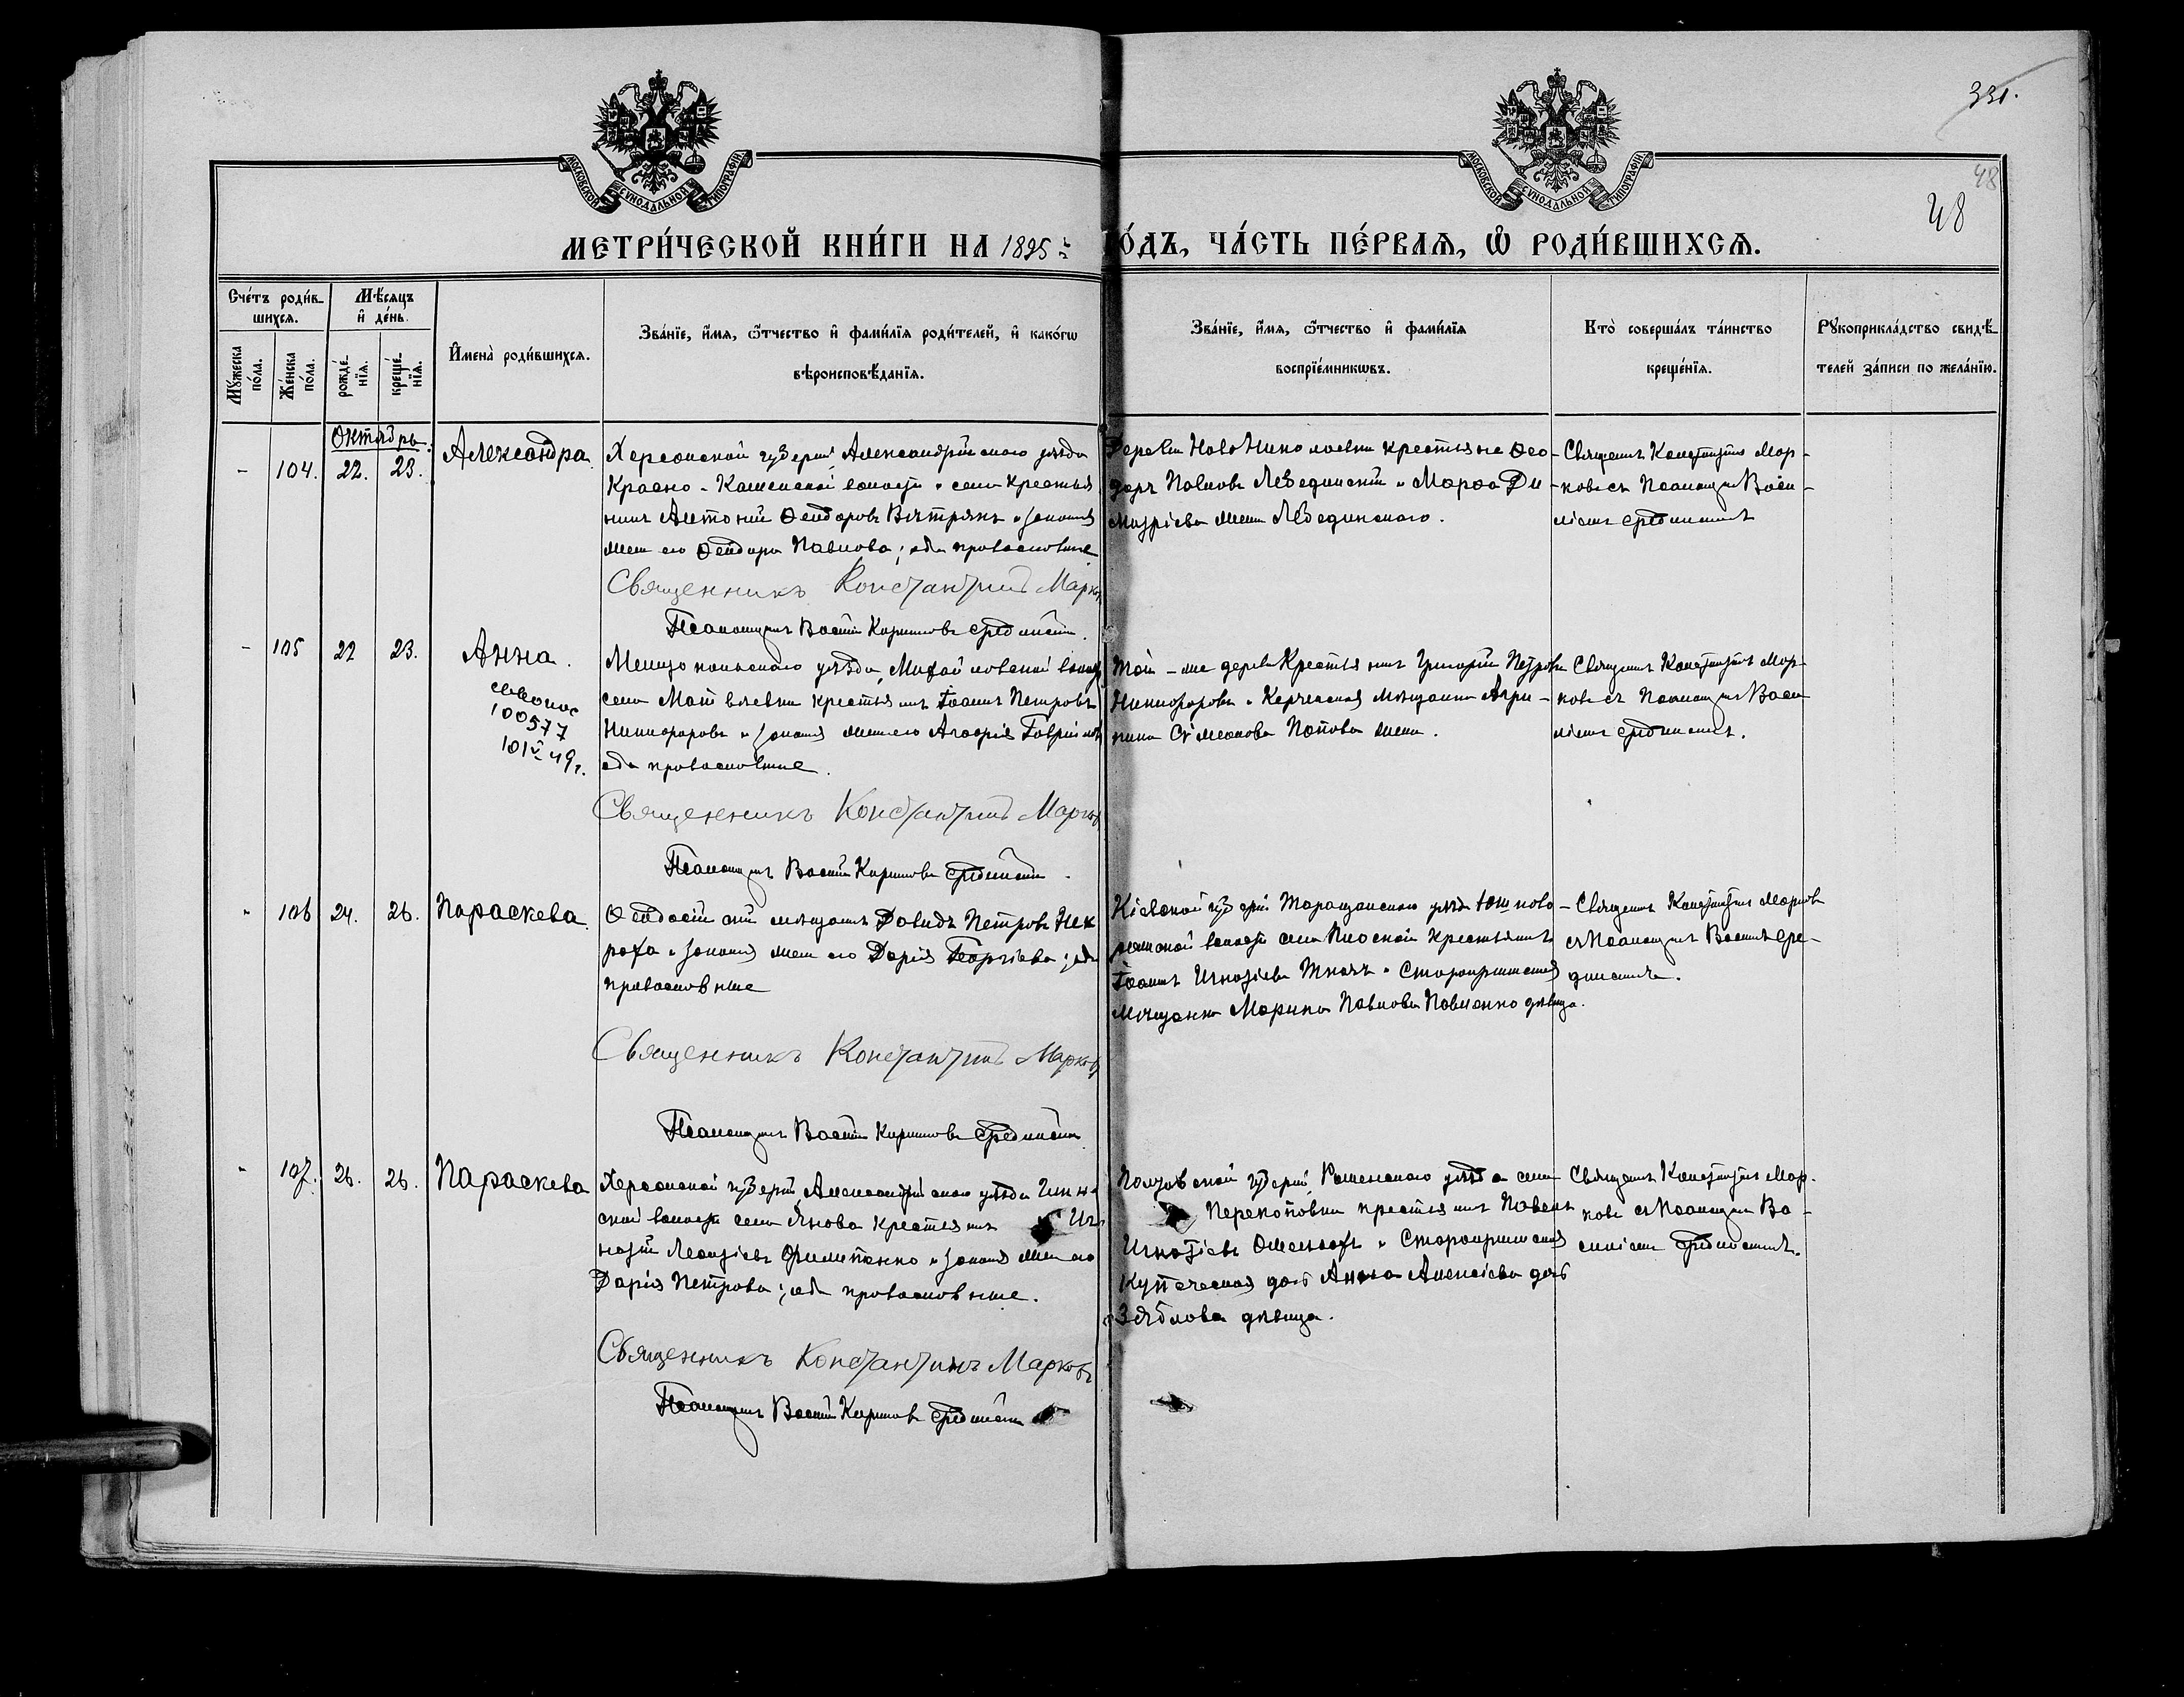 331.
48
48
МОСКОВСКОЙ СѴНОДАЛЬНОЙ ТИПОГРАФІИ
МОСКОВСКОЙ СѴНОДАЛЬНОЙ ТИПОГРАФІИ
МЕТРИ́ЧЕСКОЙ КНИ́ГИ НА 1895 й ГО́ДЪ, ЧА́СТЬ ПЕ́РВАѦ, Ѽ РОДИ́ВШИХСѦ.
Сче́тъ роди́в-
шихсѧ.
Мѣ́сѧцъ
и҆ де́нь.
Мꙋ́жеска
по́ла.
Же́нска
по́ла.
рожде́-
нїѧ.
креще́-
нїѧ.
И҆мена̀ роди́вшихсѧ.
Зва́нїе, и҆́мѧ, ѻ҆́тчество и҆ фами́лїѧ роди́телей, и҆ како́гѡ
вѣроисповѣ́данїѧ.
Зва́нїе, и҆́мѧ, ѻ҆́тчество и҆ фами́лїѧ
воспрїе́мникѡвъ.
Кто̀ соверша́лъ та́инство
креще́нїѧ.
Рꙋкоприкла́дство свидѣ́-
телей за́писи по жела́нїю.
Октябрь.
- 104. 22. 23. Александра
Херсонской губерніи, Александрійскаго уѣзда
Красно-Каменской волости и села крестья
нинъ Антоній Ѳеодоровъ Вѣтрякъ и законная
жена его Ѳеодора Павлова; оба православные
Священникъ Константинъ Марковъ
Псаломщикъ Василій Кириловъ
Деревни Ново Николаевки крестьяне Ѳео-
доръ Павловъ Лебединскій и Марѳа Ди-
митріева жена Лебединскаго.
Священникъ Константинъ Мар-
ковъ съ Псаломщикомъ Васи-
ліемъ
- 105 22 23. Анна.
100577
101V 49г.
Мелитопольскаго уѣзда, Михайловской волости
села Матвѣевки крестьянинъ Іоаннъ Петровъ
Никифоровъ и законная жена его Агафія Гавріилова
оба православные.
Священникъ Константинъ Марковъ
Псаломщикъ Василій Кириловъ
Той-же деревни Крестьянинъ Григорій Петровъ
Никифоровъ и Керченская мѣщанка Агри-
пина Симеонова Попова жена.
Священникъ Константинъ Мар-
ковъ съ Псаломщикомъ Васи
ліемъ
- 106 24. 26. Параскева
Ѳеодосійскій мѣщанинъ Давидъ Петровъ
и законная жена его Дарія Георгіева; оба
православные
Священникъ Константинъ Марковъ
Псаломщикъ Василій Кириловъ
Кіевской губерніи Таращанскаго уѣзда
волости села крестьянинъ
Іоаннъ Игнатіевъ Ткачъ и Старокрымская
Мѣщанка Марина Павлова Павленко дѣвица.
Священникъ Константинъ Марковъ
съ Псаломщикомъ Василіемъ
- 107. 26. 26. Параскева
Херсонской губерніи, Александрійскаго уѣзда
ской волости села Янова крестьянинъ Иг-
натій Леонтіевъ Филипенко и законная жена его
Дарія Петрова; оба православные.
Священникъ Константинъ Марковъ
Псаломщикъ Василій Кириловъ
Полтавской губерніи, Роменскаго уѣзда села
Перекоповки крестьянинъ Павелъ
Игнатіевъ и Старокрымская
Купеческая дочь Анна Алексіева дочь
Зяблова дѣвица.
Священникъ Константинъ Мар-
ковъ съ Псаломщикомъ Ва-
силіемъ